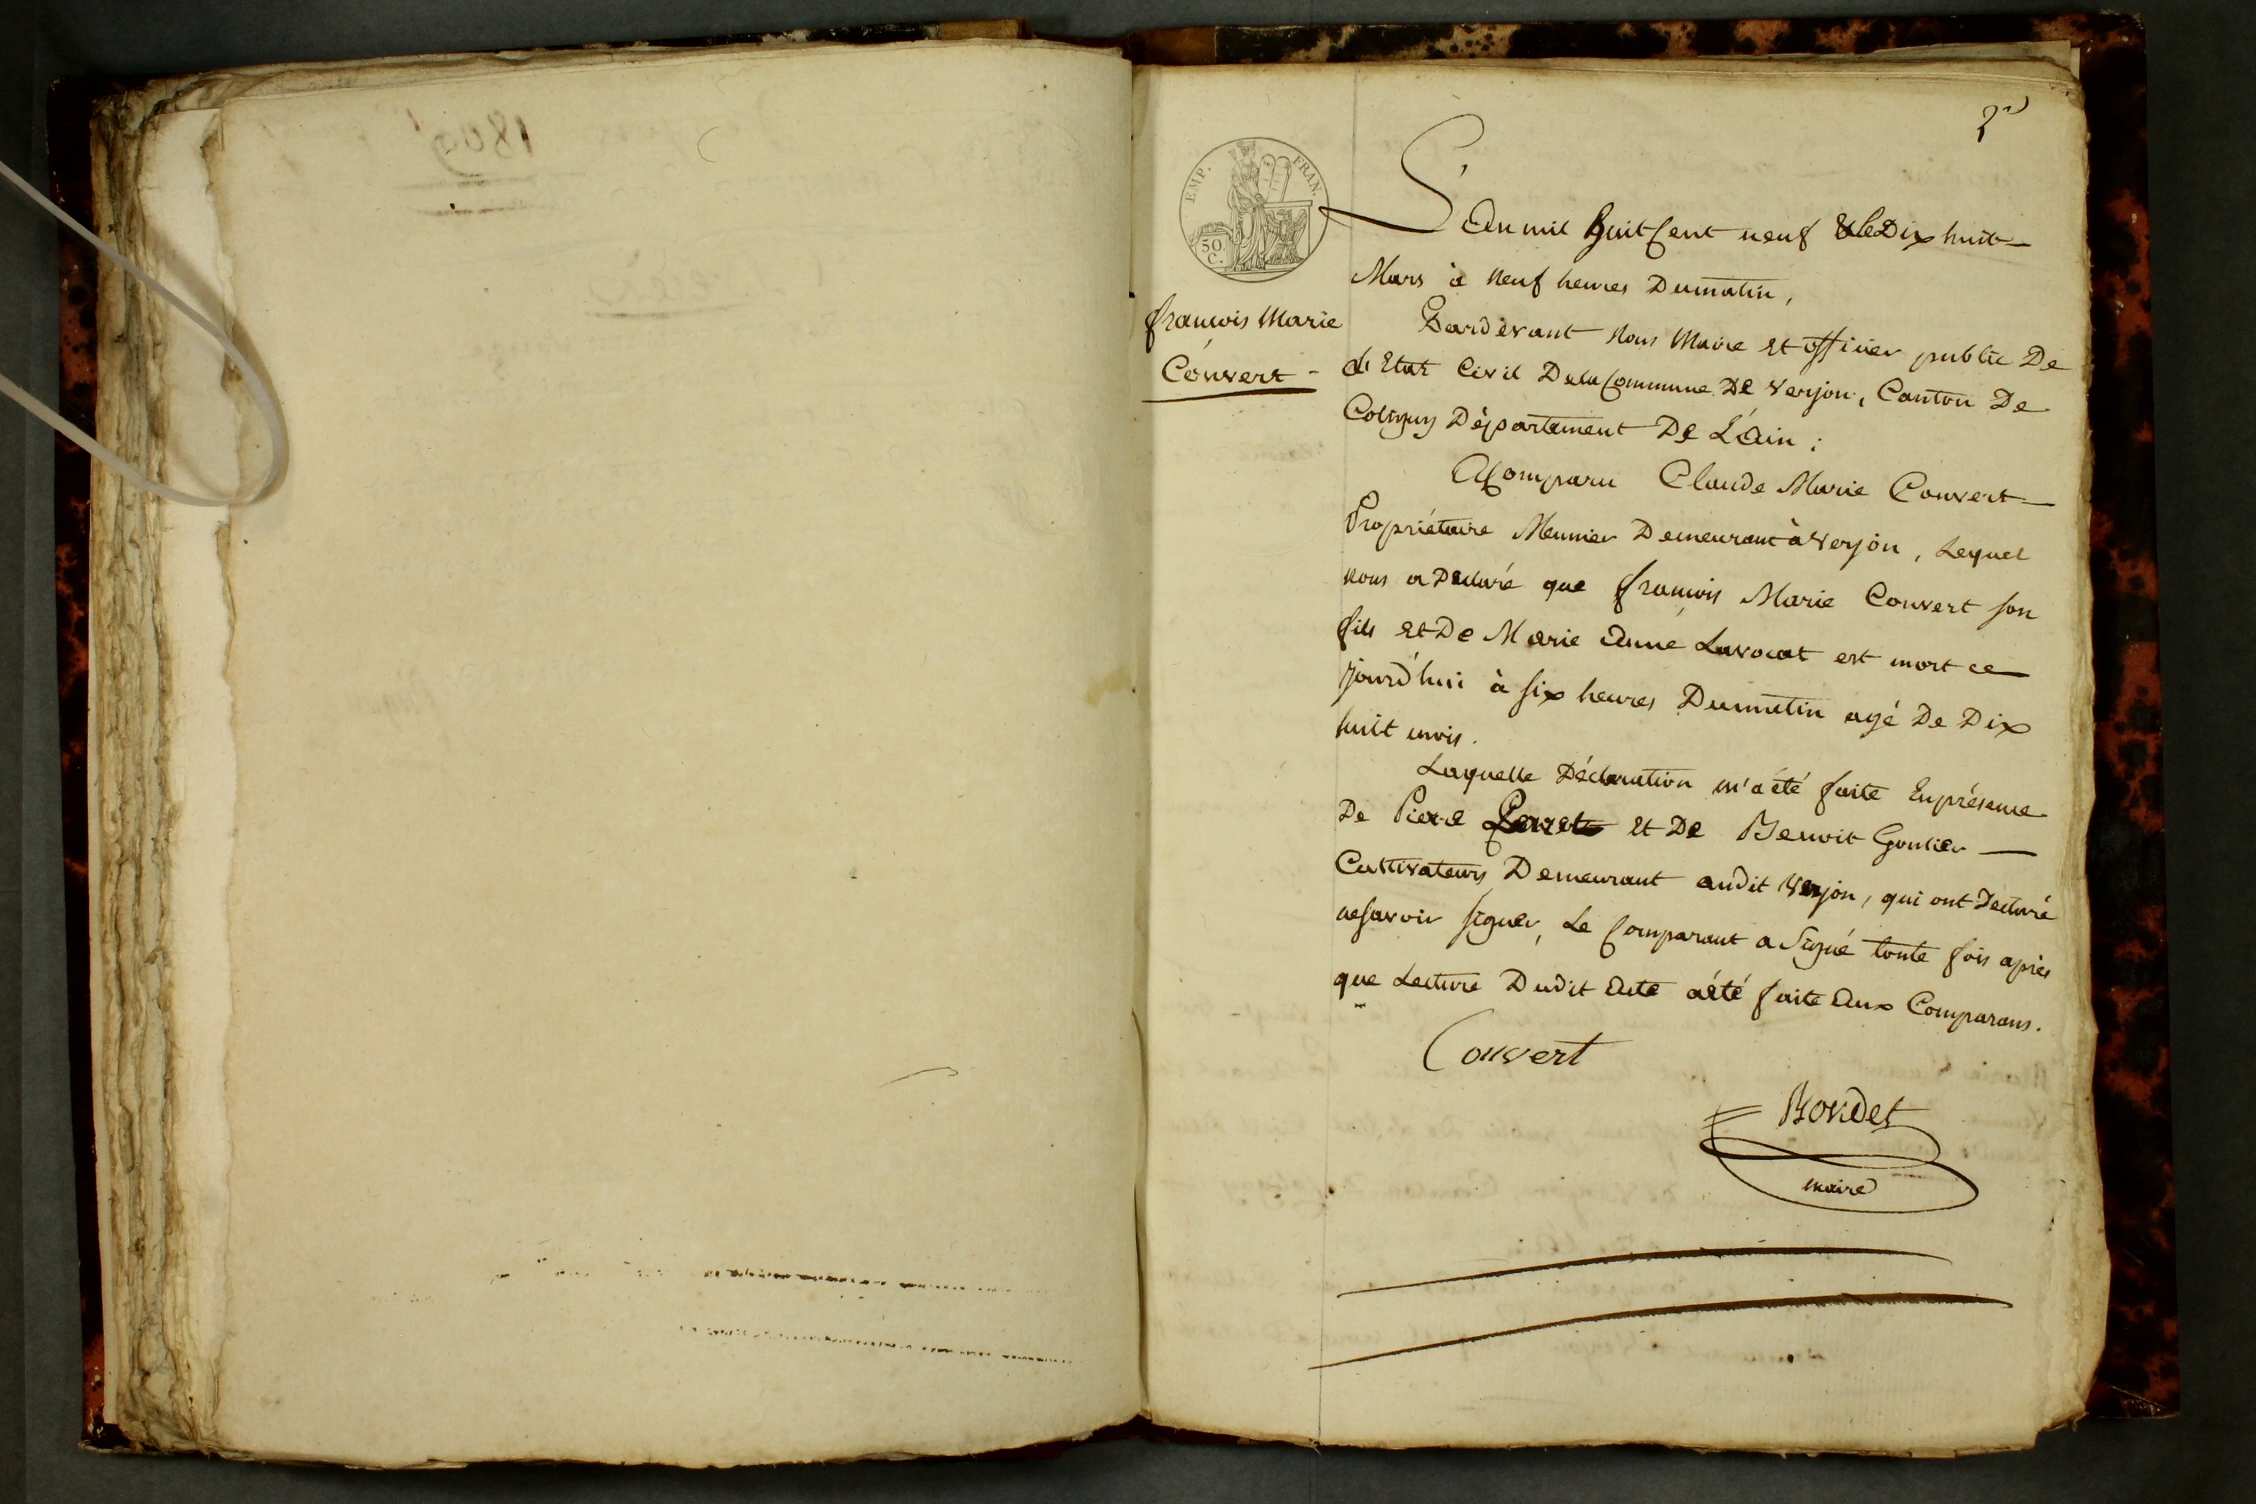 2
EMP. FRAN.
50.
C.
L'an mil huit cent neuf & le Dix huit
Mars à neuf heures Dumatin,
françois Marie
Convert
Pardevant nous Maire et officier public De
d'Etat Civil Dela Commune De Verjon, Canton De
Coligny Département De L'Ain :
A Comparu Claude Marie Convert
Propriétaire Meunier Demeurant à Verjon, Lequel
nous a Declaré que françois Marie Convert son
fils et De Marie Anne Lavocat est mort ce
jourd'hui à six heures Dumatin agé De Dix
huit mois.
Laquelle Déclaration m'a été faite En présence
De Pierre Perret et De Benoit Gontier
Cultivateurs Demeurant audit Verjon, qui ont Declaré
ne savoir signer, Le Comparant a Signé toute fois après
que Lecture Dudit Acte a été faite Aux Comparans.
Convert
Bondet
maire